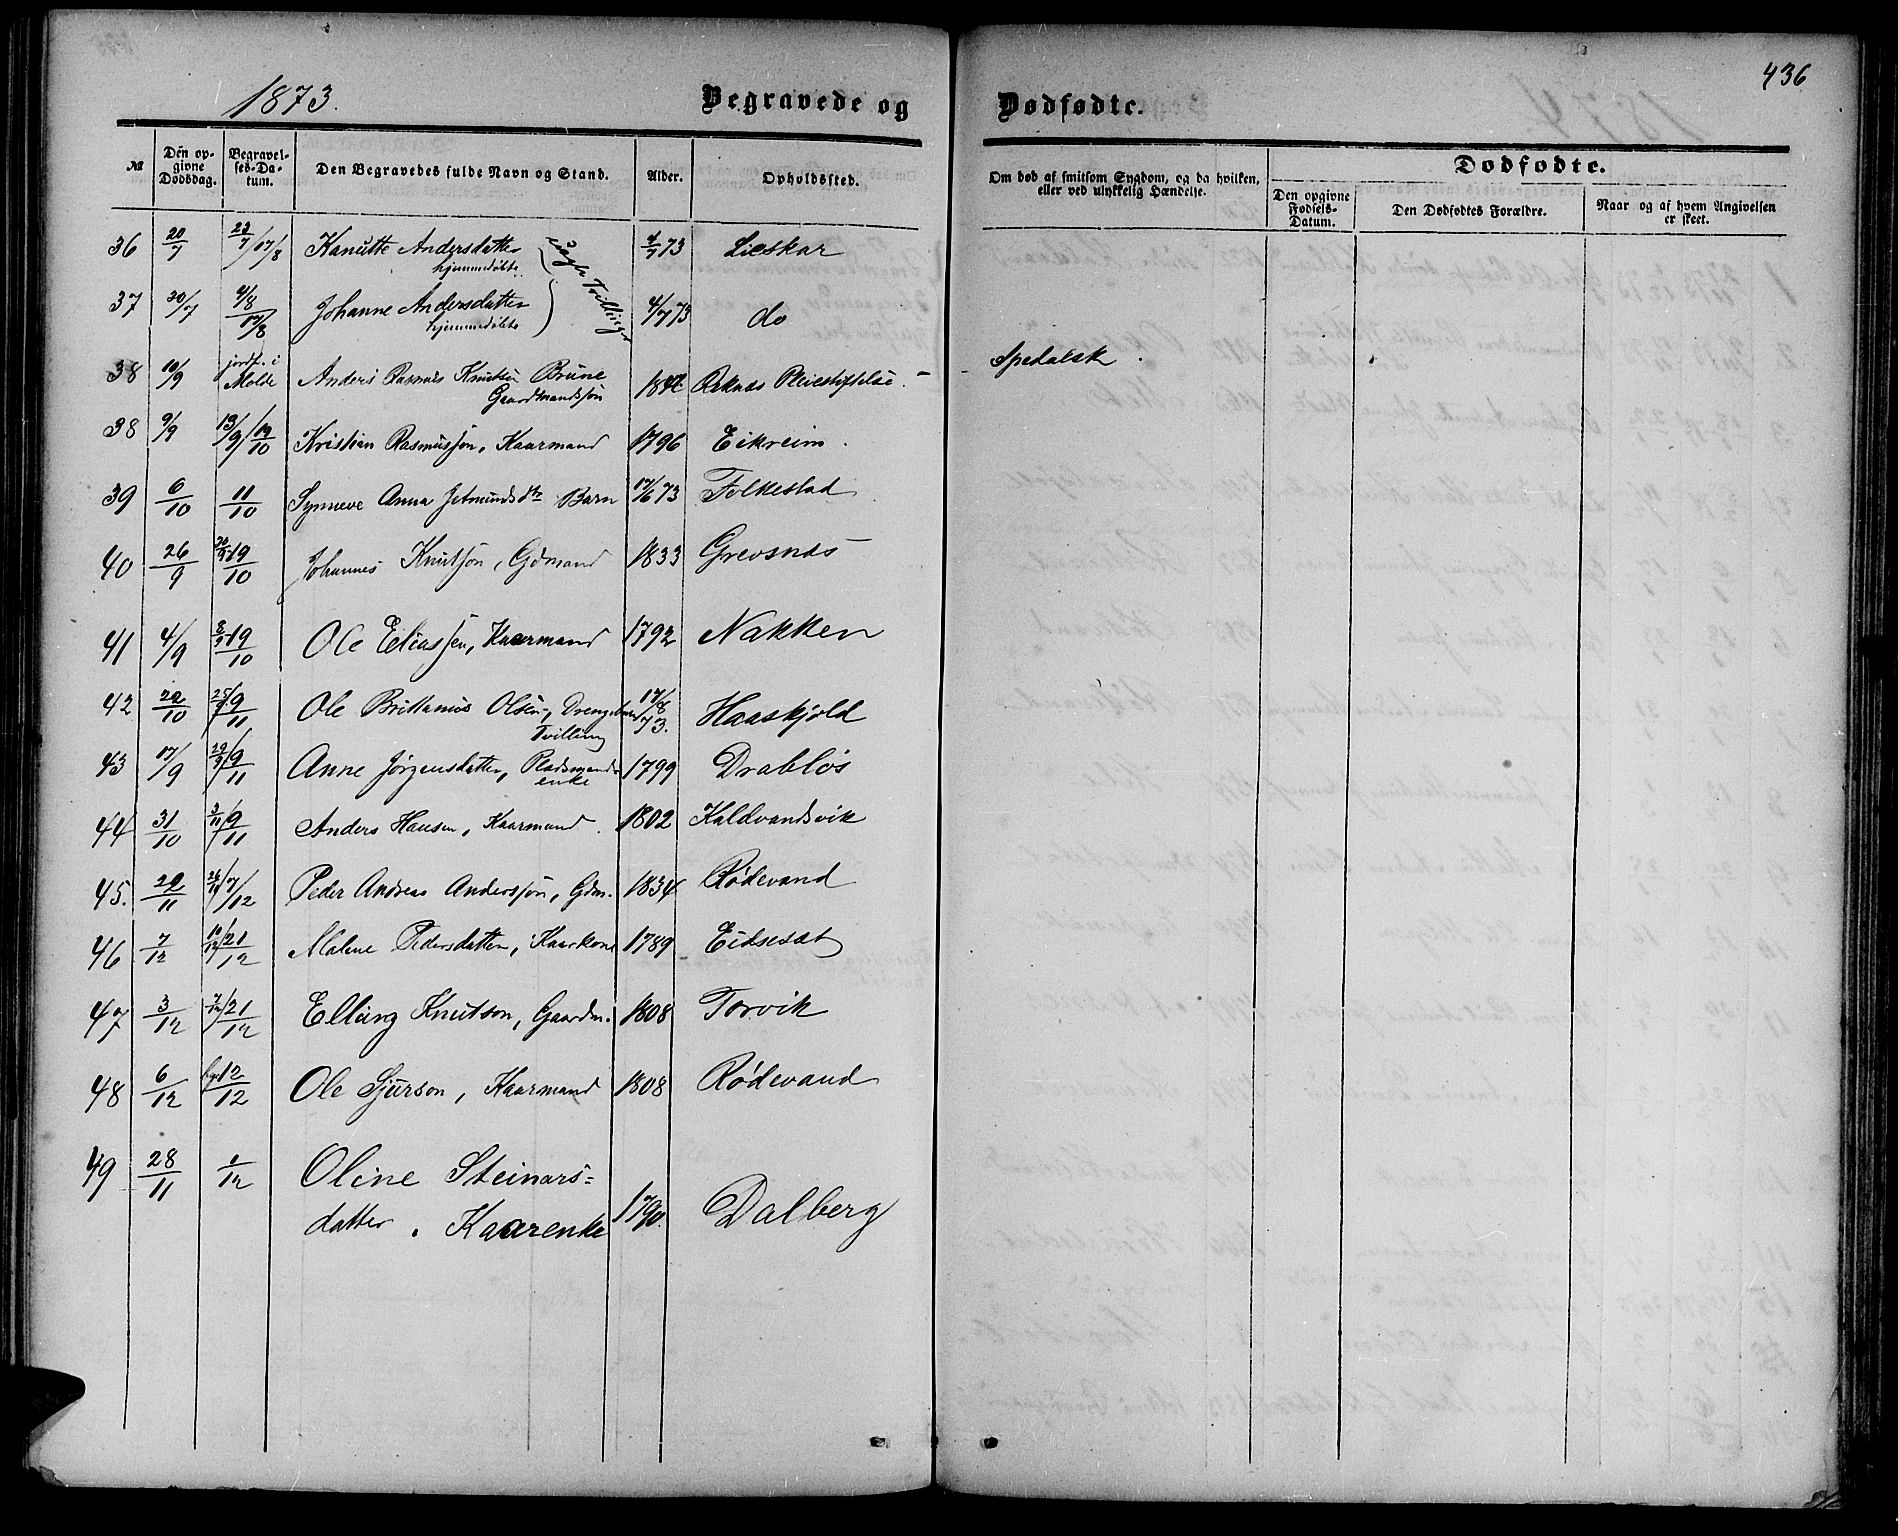 436
1873.
Begravede og Dødfødte.
№ Den opgivne Dødsdag. Begravelses-Datum. Den Begravedes fulde Navn og Stand. Alder. Opholdssted.
Om død af smitsom Sygdom, og da hvilken, eller ved ulykkelig Hændelse.
Dødfødte.
Den opgivne Fødsels-Datum. Den Dødfødtes Forældre. Naar og af hvem Angivelsen er skeet.
36 20/7 23/7 / 17/8 Kanutte Andersdatter 4/7 73 Lieskar
hjemmedøbte
Tvillinger
37 30/7 4/8 17/8 Johanne Andersdatter 4/7 73 do
hjemmedøbte
38 10/9 jordf. i Molde Anders Rasmus Knutsen Brune Reknæs Pleiestiftelse. Spedalsk
Gaardmandssøn
38 9/9 13/9 / 19/10 Kristian Rasmussøn, Kaarmand 1796 Eikreim.
39 6/10 11/10 Synneve Anna Jetmundsdtr Barn 17/6 73 Folkestad
40 26/9 30/9 19/10 Johannes Knutsøn, Gdmand 1833 Grevsnæs
41 4/9 8/9 19/10 Ole Eliassen, Kaarmand 1792 Nakken
42 20/10 25/ 9/11 Ole Brittanus Olsen, Drengebarn 17/8 73. Haaskjold
Tvilling
43 17/9 20/9 9/11 Anne Jørgensdatter, Pladsmands 1799 Drabløs
enke
44 31/10 3/11 9/11 Anders Hansen, Kaarmand. 1802 Kaldvandsvik
45. 20/11 26/11 7/12 Peder Andreas Anderssøn, Gdm. 1834 Rødevand
46 7/12 10/12 21/12 Malene Pedersdatter, Kaarkone 1789 Eidsesæt
47 3/12 7/12 21/12 Elling Knutson, Gaardm. 1808 Torvik
48 6/12 12/12 Ole Sjurson, Kaarmand 1808 Rødevand
49 28/11 1/12 Oline Steinars=
datter. Kaarenke 1790. Dalberg